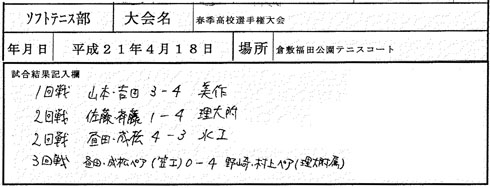 ソフトテニス部 大会名 春季高校選手権大会
年月日 平成21年4月18日 場所 倉敷福田公園テニスコート
試合結果記入欄
1回戦 山本・吉田 3-4 美作
2回戦 佐藤・斉藤 1-4 理大附
2回戦 昼田・成松 4-3 水工
3回戦 昼田・成松ペア(笠工)0-4 野崎・村上ペア(理大附属)